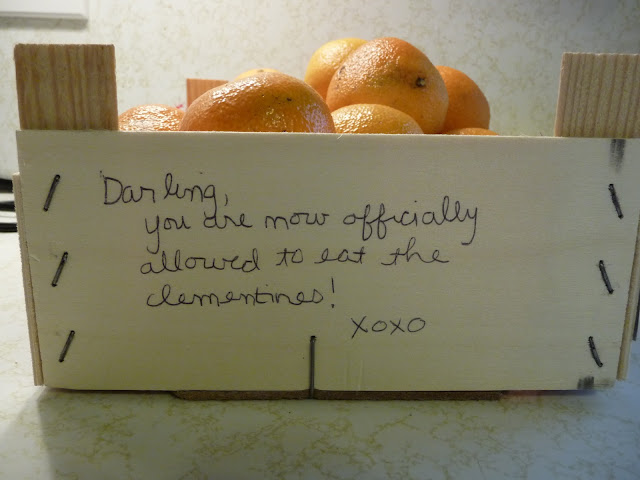 Darling,
you are now officially
allowed to eat the
clementines!
xoxo